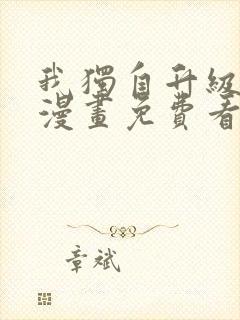 我獨自升級
漫畫免費看
章斌